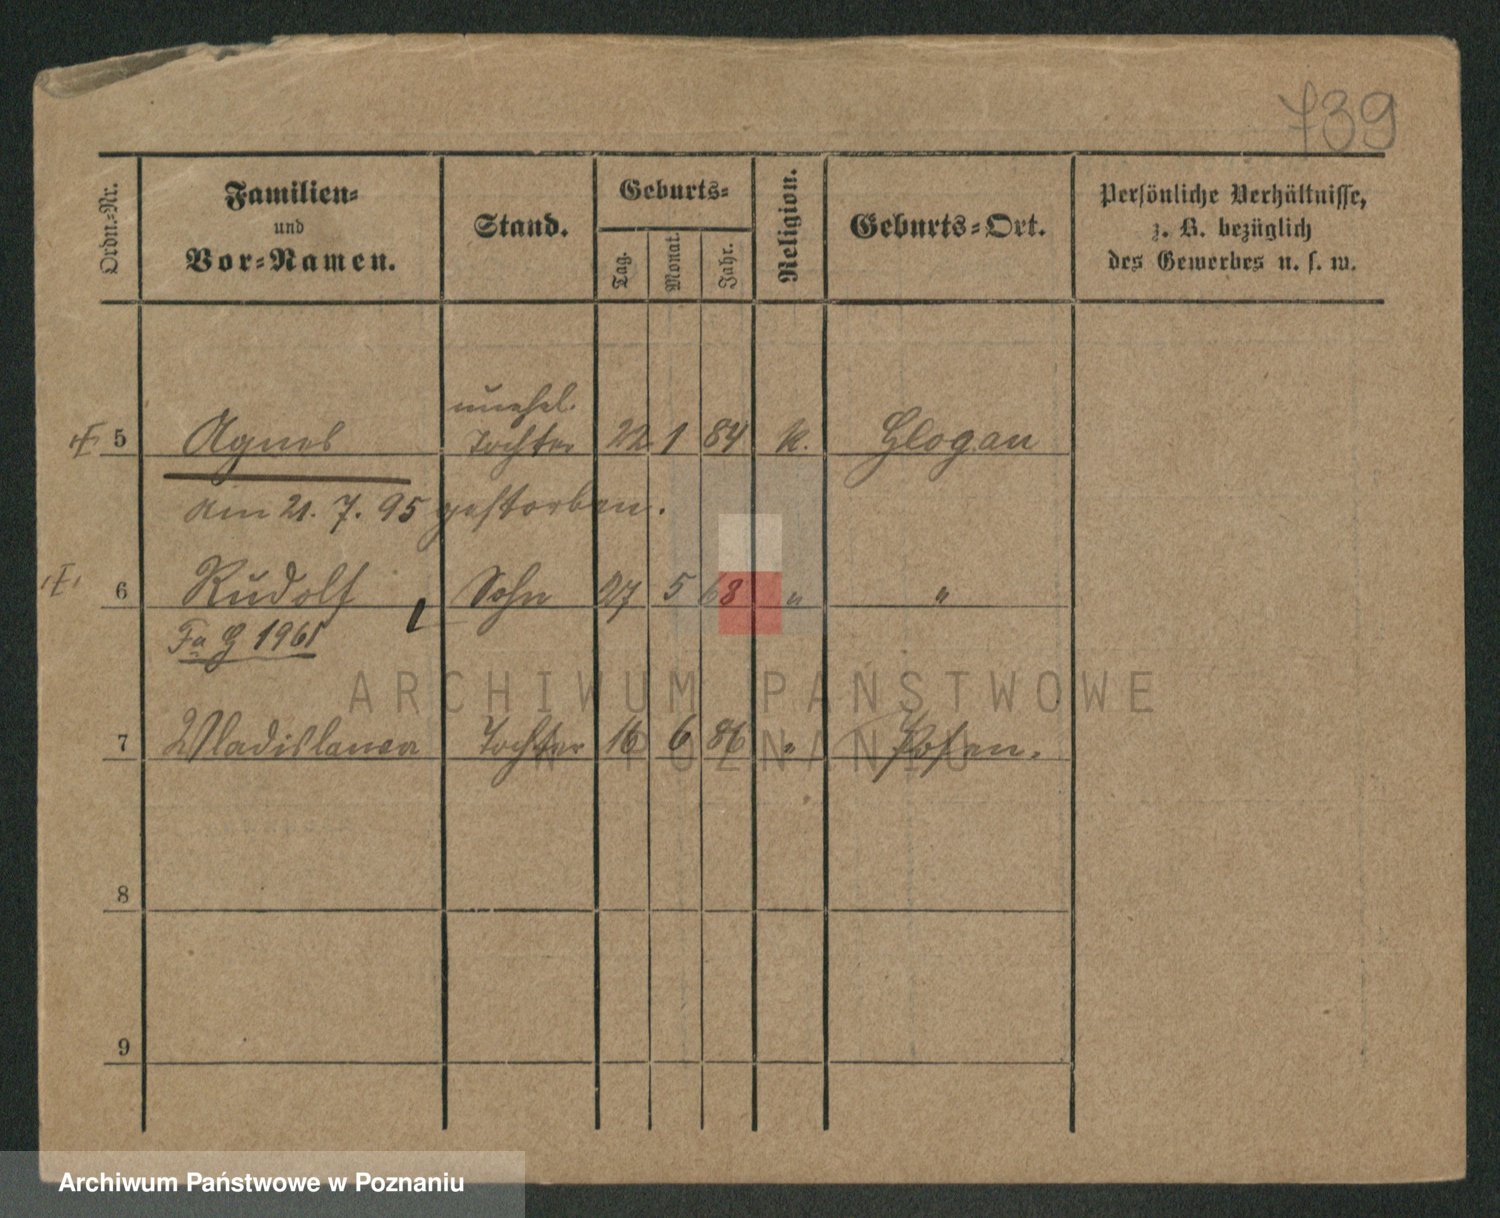 739
Ordn.-Nr.
Familien-
und
Vor-Namen.
Stand.
Geburts-
Tag.
Monat.
Jahr.
Religion.
Geburts-Ort.
Persönliche Verhältnisse,
z. B. bezüglich
des Gewerbes u. s. w.
unehel.
5 Agnes Tochter 22 1 84 k. Glogau
am 21. 7. 95 gestorben.
6 Rudolf Sohn 27 5 68 " "
1961
7 Wladislawa Tochter 16 6 86 " Posen.
8
9
ARCHIWUM PAŃSTWOWE
W POZNANIU
Archiwum Państwowe w Poznaniu